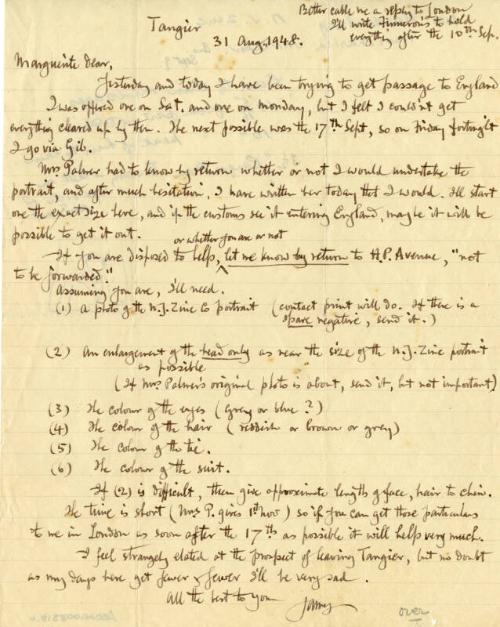 Better cable me a reply to London
I'll write Finneron's to hold
everything after the 10th Sep.
Tangier
31 Aug. 1948.
Marguerite Dear,
Yesterday and today I have been trying to get passage to England
I was offered one on Sat. and one on Monday, but I felt I couldn't get
everything cleared up by then. The next possible was the 17th Sept, so on Friday fortnight
I go via Gib.
Mrs. Palmer had to know by return whether or not I would undertake the
portrait, and after much hesitation, I have written her today that I would. I'll start
one the exact size here, and if the customs see it entering England, maybe it will be
possible to get it out.
or whether you are or not
If you are disposed to help, let me know by return to H.P. Avenue, "not
to be forwarded."
Assuming you are, I'll need.
(1) a photo of the N.J. Zinc Co portrait (contact print will do. If there is a
spare negative, send it.)
(2) An enlargement of the head only as near the size of the N.J. Zinc portrait
as possible
(If Mrs. Palmer's original photo is about, send it, but not important)
(3) The colour of the eyes (Grey or blue?)
(4) The colour of the hair (reddish or brown or grey)
(5) The colour of the tie.
(6) The colour of the suit.
If (2) is difficult, then give approximate length of face, hair to chin.
The time is short (Mrs P. gives 1st Nov) so if you can get those particulars
to me in London as soon after the 17th as possible it will help very much.
I feel strangely elated at the prospect of leaving Tangier, but no doubt
as my days here get fewer & fewer I'll be very sad.
All the best to you
Jamey
over